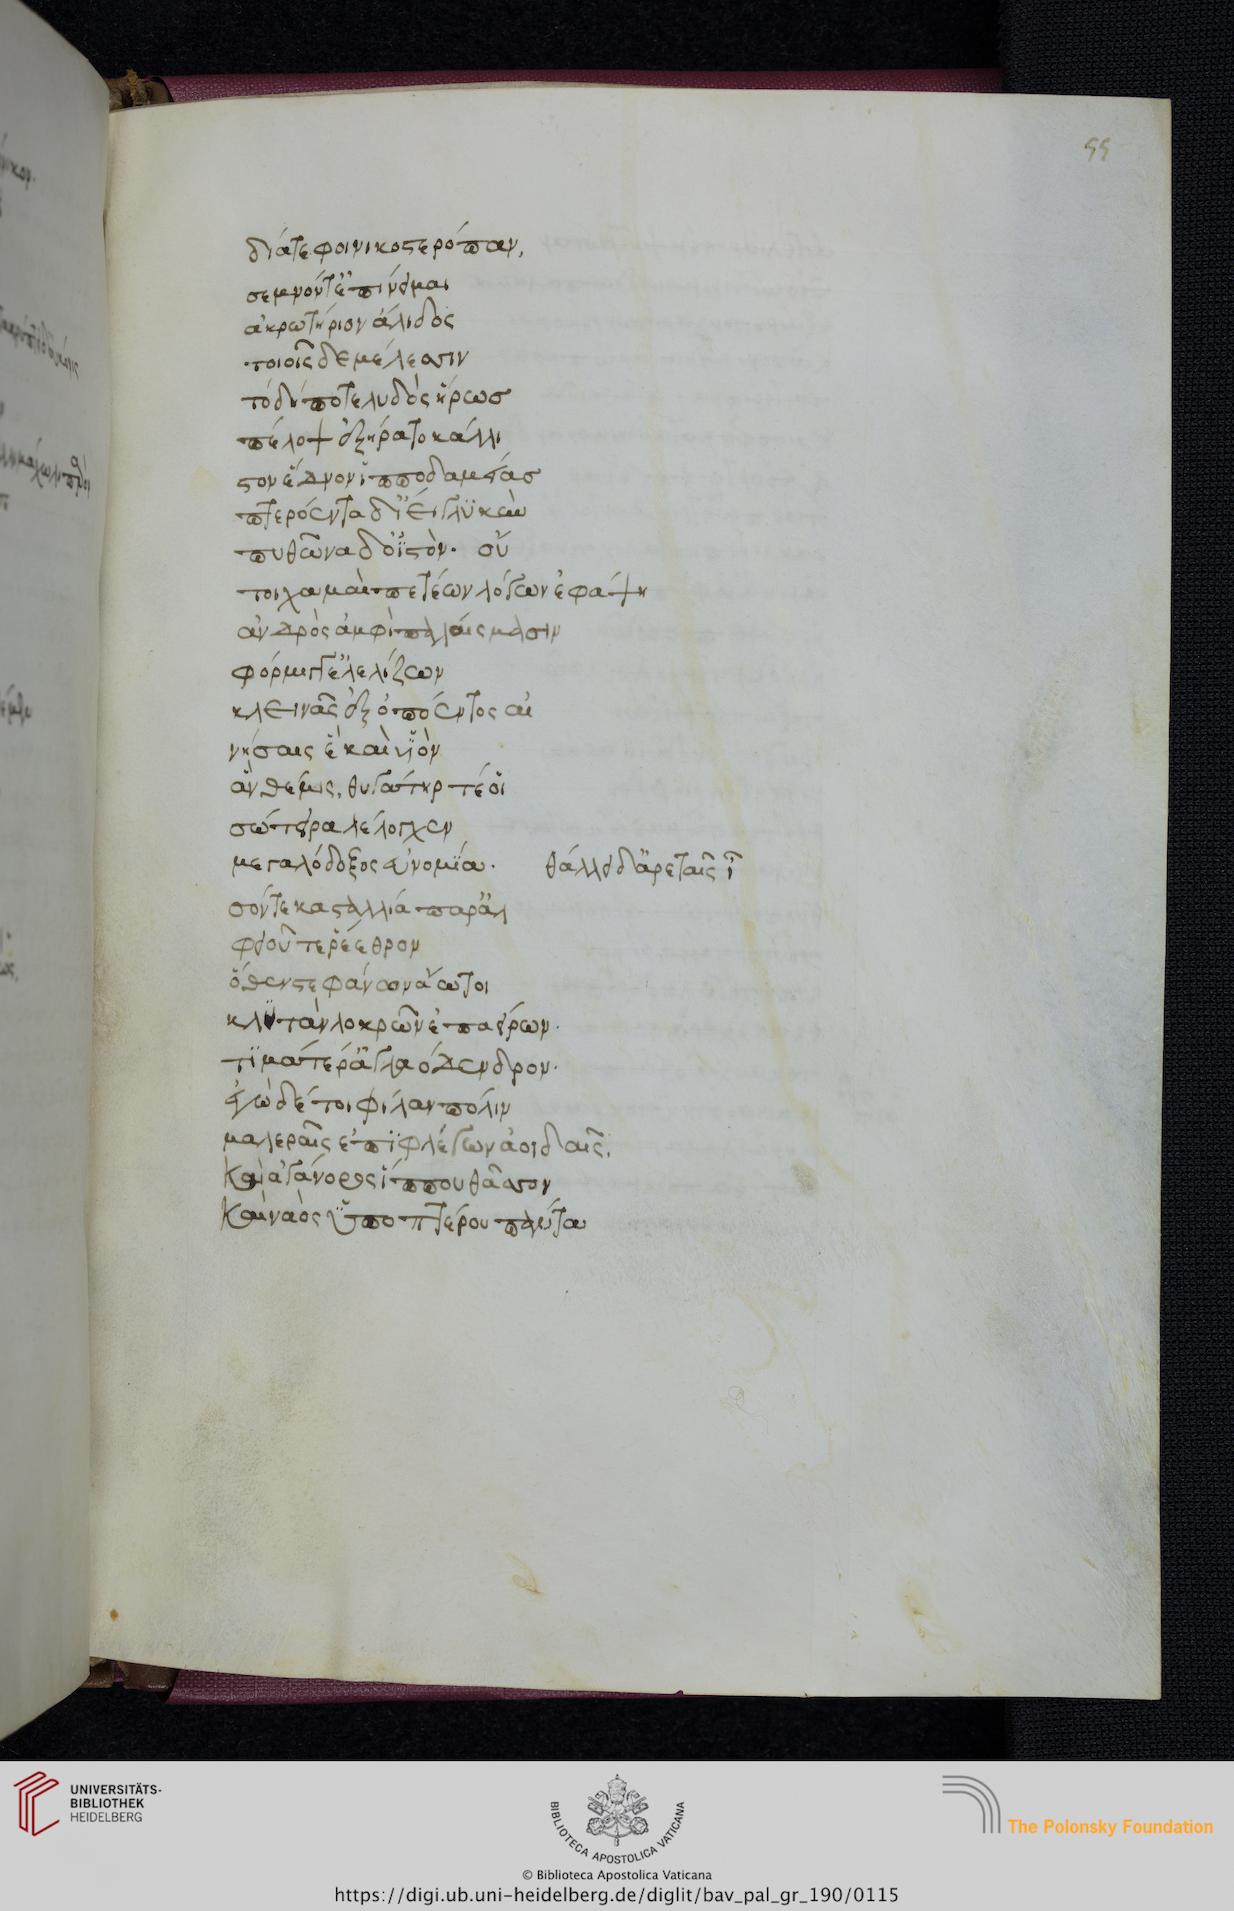 55
δία τε φοινικοστερόπαν,
σεμνόντ' ἐπινεῖμαι
ἀκρωτήριον ἄλιδος
τοιοῖσδε μέλεσιν
τὸ δήποτε λυδὸς ἥρως
πέλοψ ἐξήρατο κάλλι
στον ἕδνον ἱπποδαμείας
πτερόεντα δ' ἵει γλυκὺν
πυθῶνα δ' ὀϊστόν. οὔ
τοι χαμαιπετέων λόγων ἐφάψη
ἀνδρὸς ἀμφὶ παλαίσμασιν
φόρμιγγ' ἐλελίζων
κλεινᾶς ἐξ ὀπόεντος αἰ
νήσαις ἓ καὶ υἱὸν
ἂν θέμις, θυγάτηρ τέ οἱ
σώτειρα λέλογχεν
μεγαλόδοξος εὐνομία. θάλλει δ' ἀρεταῖς ἴ
σόν τε κασταλλία παρ' ἀλ
φειοῦ τε ῥέεθρον
ὅθεν στεφάνων ἄωτοι
κλυτὰν λοκρῶν ἐπαείρων.
τι ματέρ' ἀγλαόδενδρον.
ἐγὼ δέ τοι φίλαν πόλιν
μαλεραῖς ἐπιφλέγων ἀοιδαῖς,
Καὶ ἀγάνορος ἵππου θᾶσσον
Καὶ ναὸς ὑποπτέρου παντᾶ
UNIVERSITÄTS-
BIBLIOTHEK
HEIDELBERG
BIBLIOTECA APOSTOLICA VATICANA
The Polonsky Foundation
© Biblioteca Apostolica Vaticana
https://digi.ub.uni-heidelberg.de/diglit/bav_pal_gr_190/0115